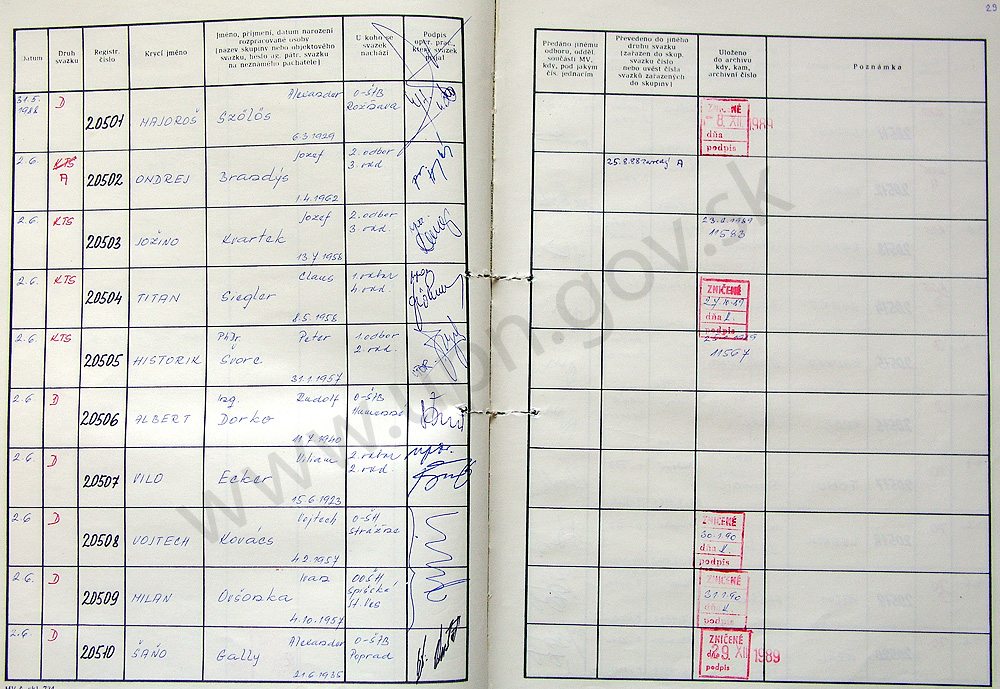 29
Datum
Druh
svazku
Registr.
číslo
Krycí jméno
Jméno, příjmení, datum narození
rozpracované osoby
(název skupiny nebo objektového
svazku, heslo ag. pátr. svazku
na neznámého pachatele)
U koho se
svazek
nachází
Podpis
oper. prac.,
který svazek
Předáno jinému
odboru, odděl.
součásti MV,
kdy, pod jakým
čís. jednacím
Převedeno do jiného
druhu svazku
(zařazen do skup.
svazku číslo
nebo uvést čísla
svazků zařazených
do skupiny)
Uloženo
do archivu
kdy, kam,
archivní číslo
Poznámka
31.5.
1988
D
20501
MAJOROŠ
Alexander
Szőlős
6.3.1929
O-ŠtB
Rožňava
ZNIČENÉ
-8. XII. 1989
dňa
podpis
2.6.
KTS
A
20502
ONDREJ
Jozef
Brandýs
1.4.1962
2. odbor
3. rad.
25.8.88 A
2.6.
KTS
20503
JOŽINO
Jozef
Kvartek
13.7.1956
2. odbor
3. rad.
11583
2.6.
KTS
20504
TITAN
Claus
Siegler
8.5.1956
1. odbor
4. rad.
ZNIČENÉ
dňa
podpis
2.6.
KTS
20505
HISTORIK
PhDr. Peter
Švorc
31.1.1957
1. odbor
2. rad.
11567
2.6
D
20506
ALBERT
Ing. Rudolf
Dorko
11.7.1940
O-ŠtB
Humenné
2.6.
D
20507
VILO
Viliam
Ecker
15.6.1923
2. odbor
2. rad.
2.6
D
20508
VOJTECH
Vojtech
Kovács
4.2.1957
ZNIČENÉ
30.1.90
dňa
podpis
2.6.
D
20509
MILAN
Ivan
Oršonka
4.10.1957
Spišská
St. Ves
ZNIČENÉ
31.1.90
dňa
podpis
2.6.
D
20510
ŠAŇO
Alexander
Gally
21.6.1935
O-ŠtB
Poprad
ZNIČENÉ
29. XII. 1989
dňa
podpis
www.upn.gov.sk